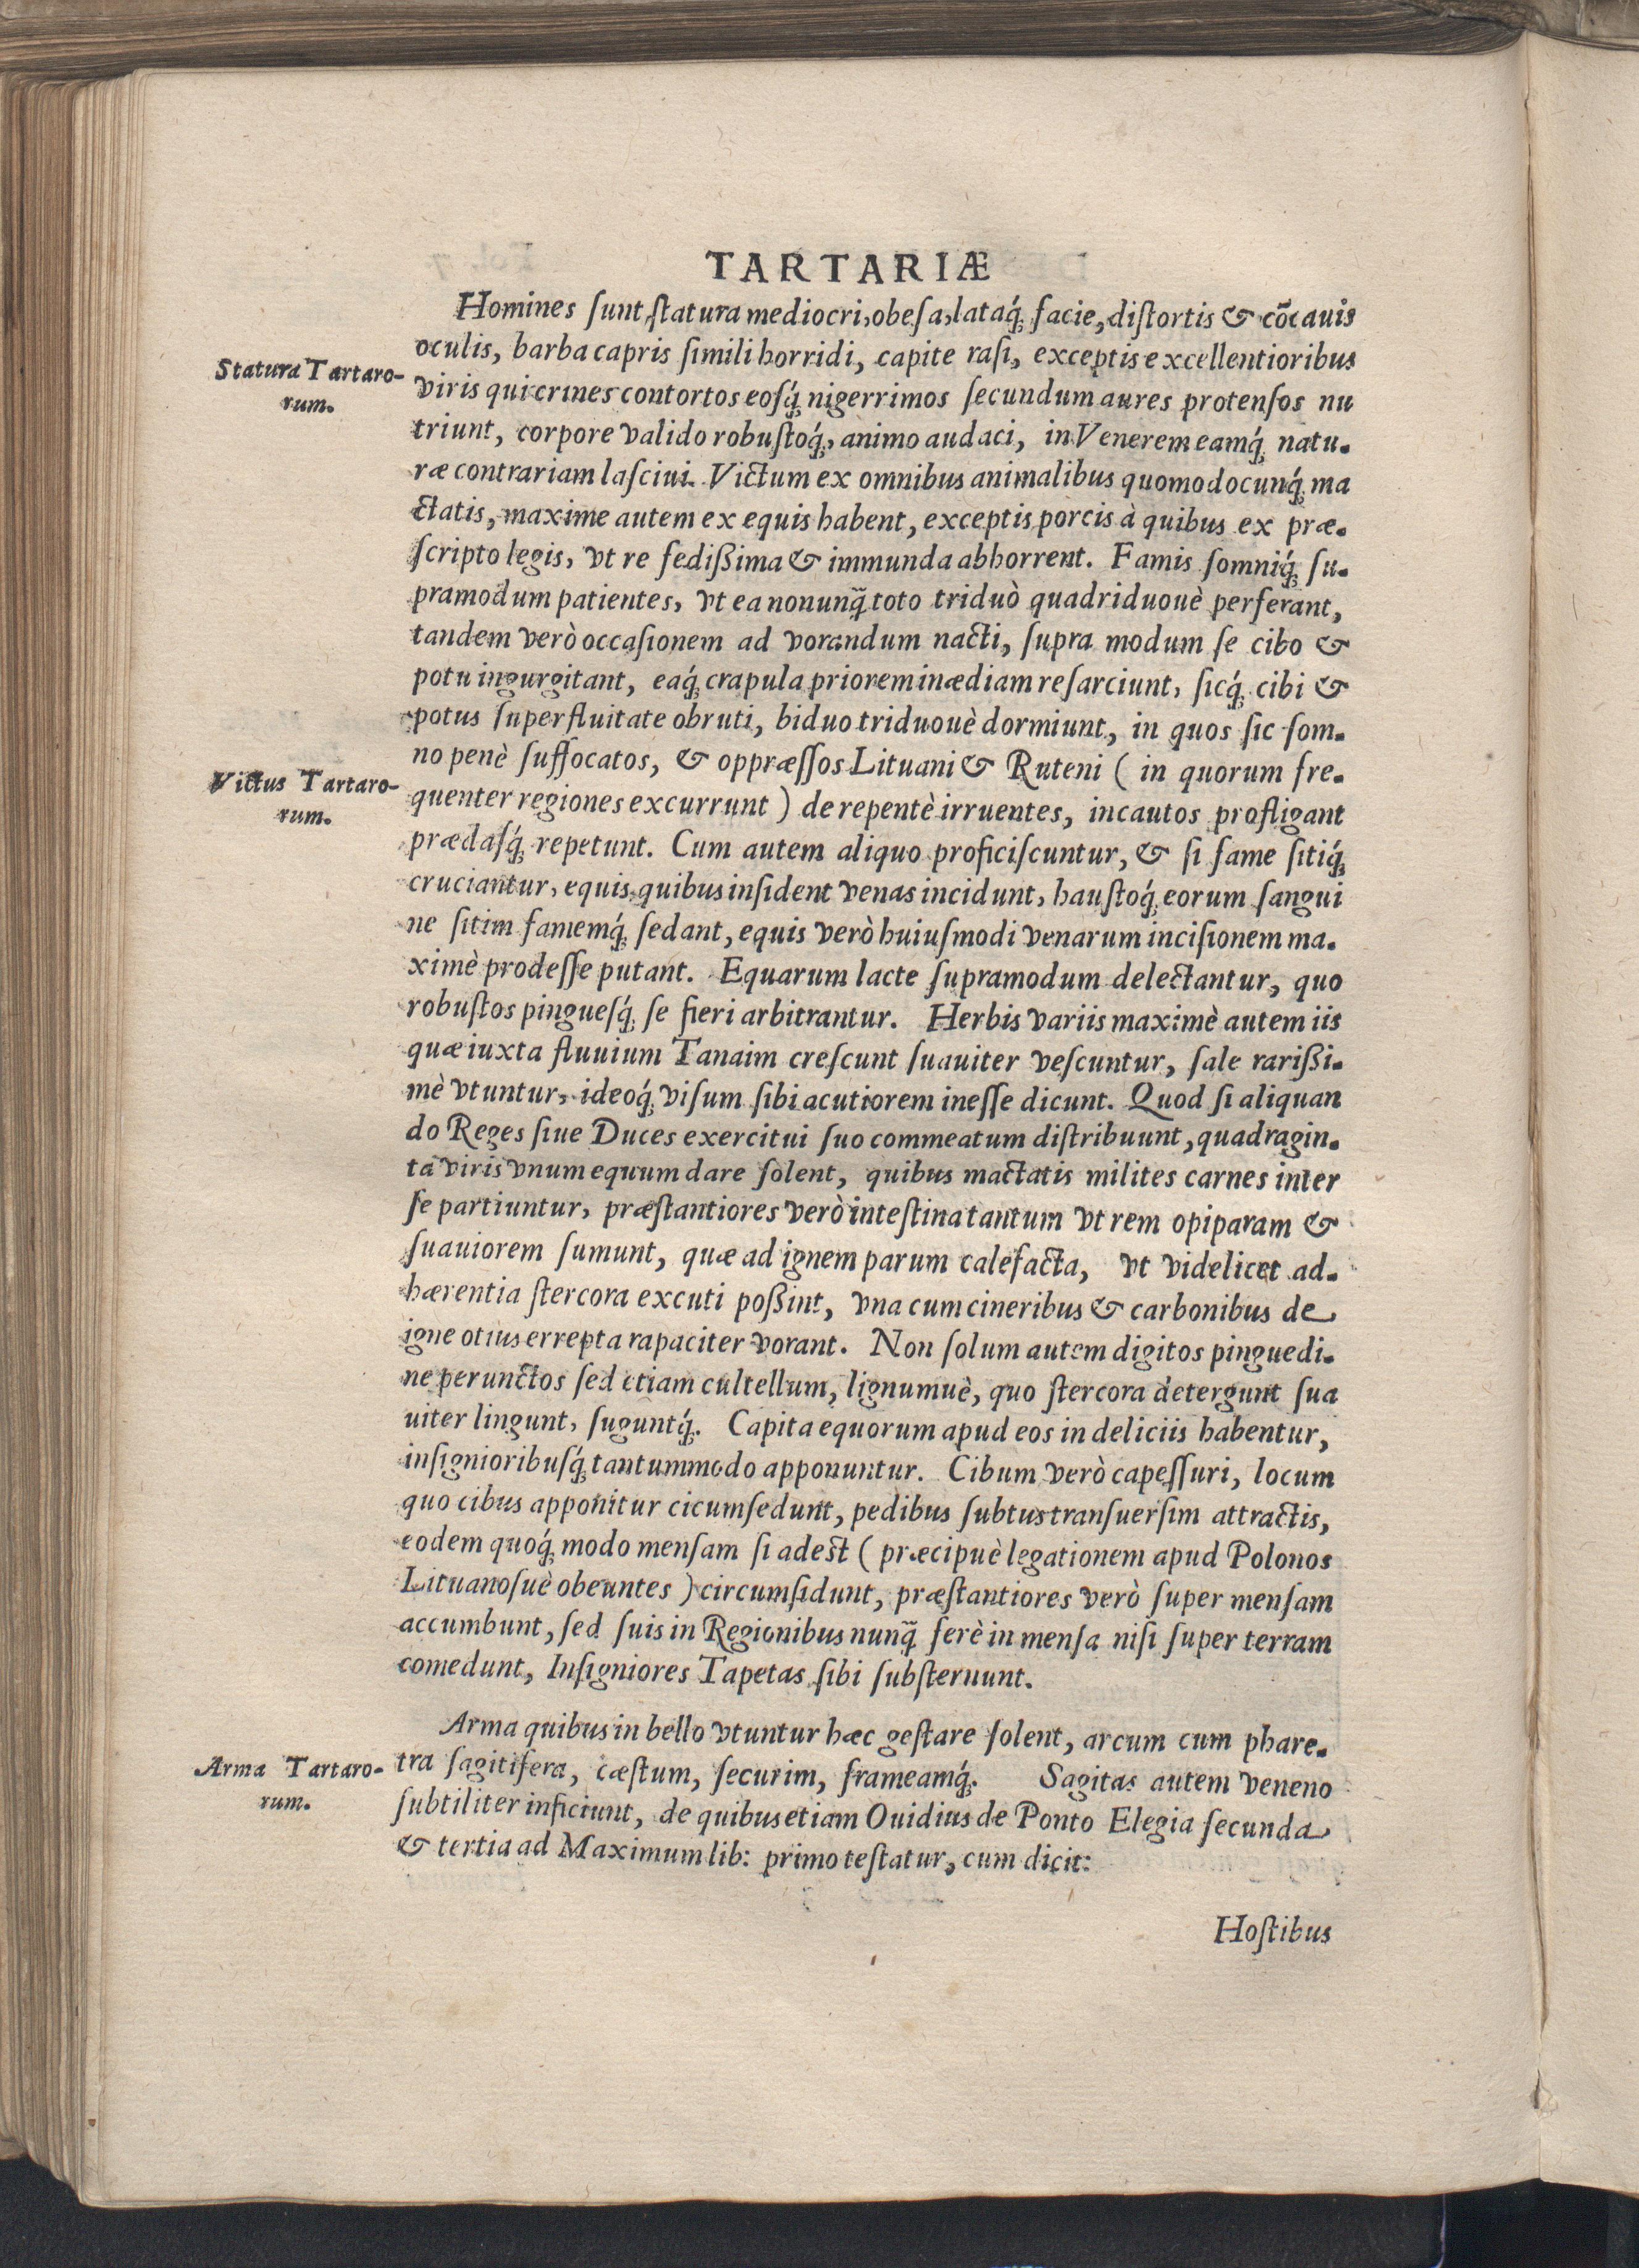 TARTARIÆ
Homines ſunt ſtatura mediocri, obeſa, lataq́; facie, diſtortis & cõcauis
oculis, barba capris ſimili horridi, capite raſi, exceptis excellentioribus
Statura Tartaro-
rum.
viris qui crines contortos eoſq́; nigerrimos ſecundum aures protenſos nu
triunt, corpore valido robuſtoq́;, animo audaci, in Venerem eamq́; natu-
ræ contrariam laſciui. Victum ex omnibus animalibus quomodocunq́; ma
ctatis, maxime autem ex equis habent, exceptis porcis à quibus ex præ-
ſcripto legis, vt re fedißima & immunda abhorrent. Famis ſomniq́; ſu-
pramodum patientes, vt ea nonunq̃ toto triduò quadriduouè perferant,
tandem verò occaſionem ad vorandum nacti, ſupra modum ſe cibo &
potu ingurgitant, eaq́; crapula priorem inædiam reſarciunt, ſicq́; cibi &
potus ſuperfluitate obruti, biduo triduouè dormiunt, in quos ſic ſom-
no penè ſuffocatos, & oppræſſos Lituani & Ruteni ( in quorum fre-
Victus Tartaro-
rum.
quenter regiones excurrunt ) de repentè irruentes, incautos profligant
prædaſq́; repetunt. Cum autem aliquo proficiſcuntur, & ſi fame ſitiq́;
cruciantur, equis quibus inſident venas incidunt, hauſtoq́; eorum ſangui
ne ſitim famemq́; ſedant, equis verò huiuſmodi venarum inciſionem ma-
ximè prodeſſe putant. Equarum lacte ſupramodum delectantur, quo
robuſtos pingueſq́; ſe fieri arbitrantur. Herbis variis maximè autem iis
quæ iuxta fluuium Tanaim creſcunt ſuauiter veſcuntur, ſale rarißi-
mè vtuntur, ideoq́; viſum ſibi acutiorem ineſſe dicunt. Quod ſi aliquan
do Reges ſiue Duces exercitui ſuo commeatum diſtribuunt, quadragin-
ta viris vnum equum dare ſolent, quibus mactatis milites carnes inter
ſe partiuntur, præſtantiores verò inteſtina tantum vt rem opiparam &
ſuauiorem ſumunt, quæ ad ignem parum calefacta, vt videlicet ad-
hærentia ſtercora excuti poßint, vna cum cineribus & carbonibus de
igne otius errepta rapaciter vorant. Non ſolum autem digitos pinguedi-
ne perunctos ſed etiam cultellum, lignumuè, quo ſtercora detergunt ſua
uiter lingunt, ſuguntq́;. Capita equorum apud eos in deliciis habentur,
inſignioribuſq́; tantummodo apponuntur. Cibum verò capeſſuri, locum
quo cibus apponitur cicumſedunt, pedibus ſubtus tranſuerſim attractis,
eodem quoq́; modo menſam ſi adest ( præcipuè legationem apud Polonos
Lituanoſuè obeuntes ) circumſidunt, præſtantiores verò ſuper menſam
accumbunt, ſed ſuis in Regionibus nunq̃ ferè in menſa niſi ſuper terram
comedunt, Inſigniores Tapetas ſibi ſubſternunt.
Arma quibus in bello vtuntur hæc geſtare ſolent, arcum cum phare-
Arma Tartaro-
rum.
tra ſagitifera, cæſtum, ſecurim, frameamq́;. Sagitas autem veneno
ſubtiliter inficiunt, de quibus etiam Ouidius de Ponto Elegia ſecunda
& tertia ad Maximum lib: primo teſtatur, cum dicit:
Hoſtibus